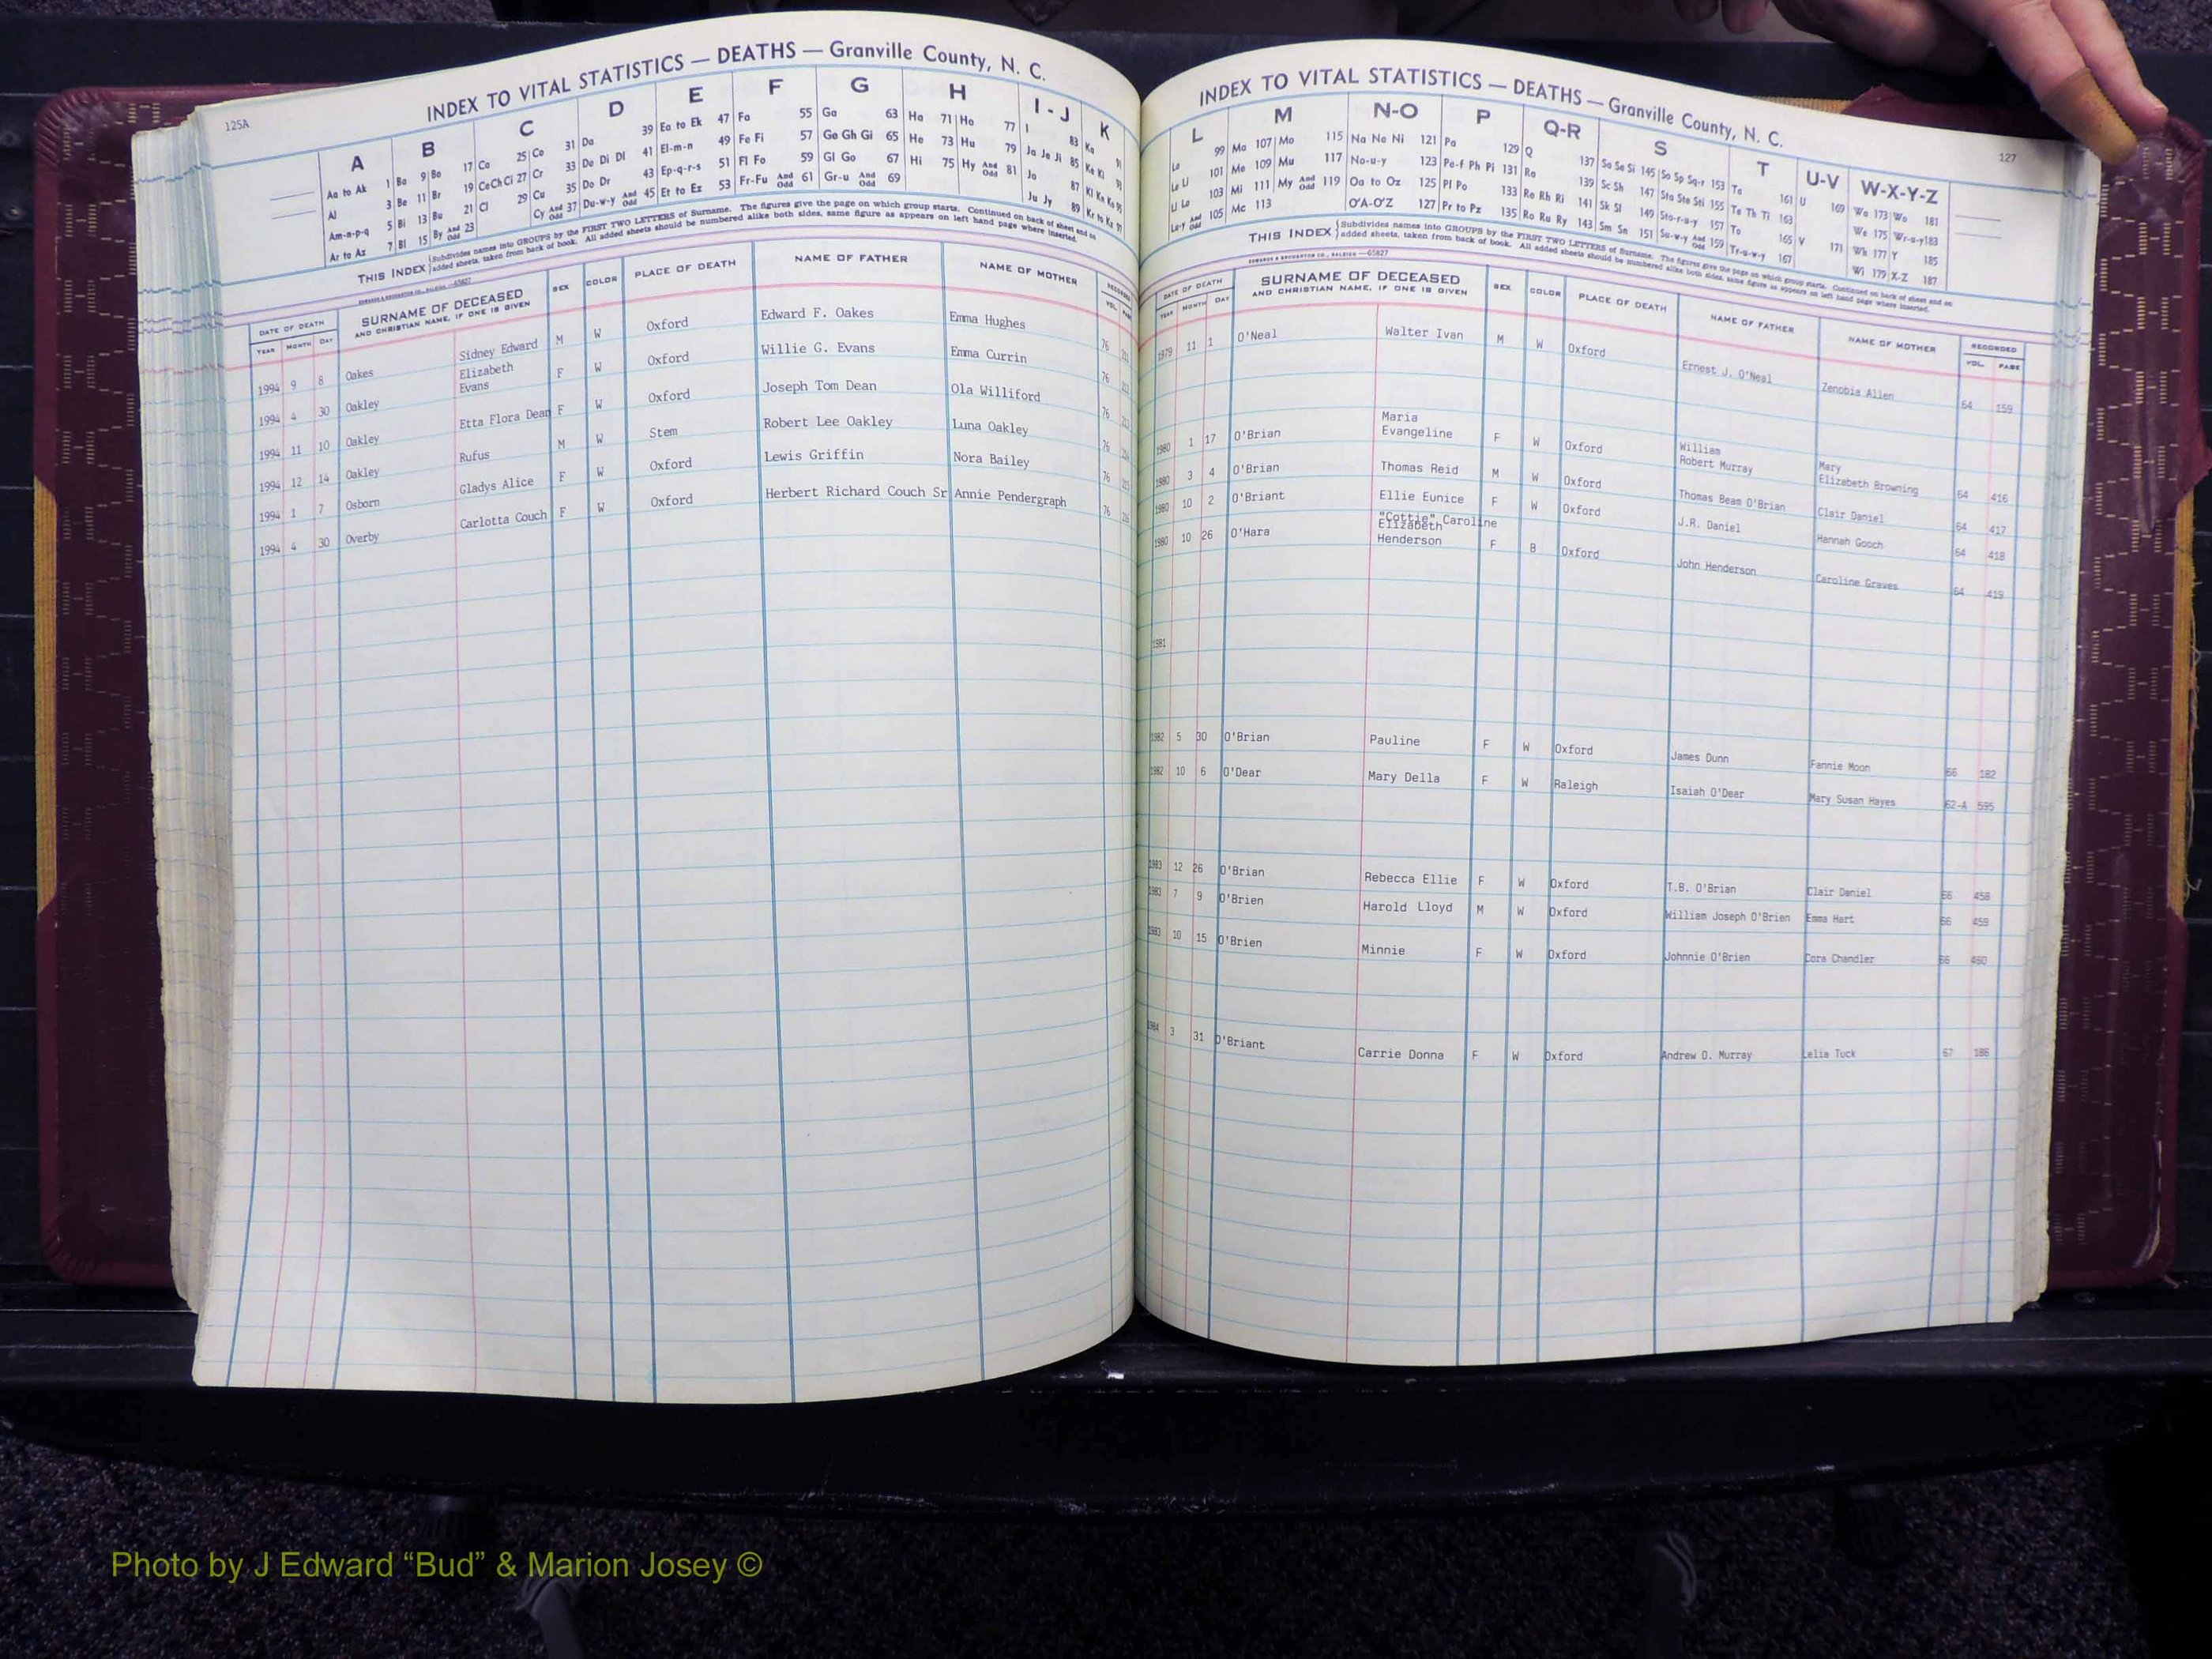 125A
INDEX TO VITAL STATISTICS — DEATHS — Granville County, N. C.
A B C D E F G H I - J K
Aa to Ak 1 Ba 9 Bo 17 Ca 25 Co 31 Da 39 Ea to Ek 47 Fa 55 Ga 63 Ha 71 Ho 77 I 83 Ka 91
Al 3 Be 11 Br 19 Ce Ch Ci 27 Cr 33 De Di Dl 41 El-m-n 49 Fe Fi 57 Ge Gh Gi 65 He 73 Hu 79 Ja Je Ji 85 Ke Ki 93
Am-n-p-q 5 Bi 13 Bu 21 Cl 29 Cu 35 Do Dr 43 Ep-q-r-s 51 Fl Fo 59 Gl Go 67 Hi 75 Hy And Odd 81 Jo 87 Kl Kn Ko 95
Ar to Az 7 Bl 15 By And Odd 23 Cy And Odd 37 Du-w-y And Odd 45 Et to Ez 53 Fr-Fu And Odd 61 Gr-u And Odd 69 Ju Jy 89 Kr to Kz 97
THIS INDEX Subdivides names into GROUPS by the FIRST TWO LETTERS of Surname. The figures give the page on which group starts. Continued on back of sheet end on
added sheets, taken from back of book. All added sheets should be numbered alike both sides, same figure as appears on left hand page where inserted.
EDWARDS & BROUGHTON CO., RALEIGH —65827
DATE OF DEATH YEAR MONTH DAY SURNAME OF DECEASED AND CHRISTIAN NAME, IF ONE IS GIVEN SEX COLOR PLACE OF DEATH NAME OF FATHER NAME OF MOTHER RECORDED VOL. PAGE
1994 9 8 Oakes Sidney Edward M W Oxford Edward F. Oakes Emma Hughes 76 211
1994 4 30 Oakley Elizabeth Evans F W Oxford Willie G. Evans Emma Currin 76 212
1994 11 10 Oakley Etta Flora Dean F W Oxford Joseph Tom Dean Ola Williford 76 213
1994 12 14 Oakley Rufus M W Stem Robert Lee Oakley Luna Oakley 76 214
1994 1 7 Osborn Gladys Alice F W Oxford Lewis Griffin Nora Bailey 76 215
1994 4 30 Overby Carlotta Couch F W Oxford Herbert Richard Couch Sr Annie Pendergraph 76 216
127
INDEX TO VITAL STATISTICS — DEATHS — Granville County, N. C.
L M N-O P Q-R S T U-V W-X-Y-Z
La 99 Ma 107 Mo 115 Na Ne Ni 121 Pa 129 Q 137 Sa Se Si 145 So Sp Sq-r 153 Ta 161 U 169 Wa 173 Wo 181
Le Li 101 Me 109 Mu 117 No-u-y 123 Pe-f Ph Pi 131 Ra 139 Sc Sh 147 Sta Ste Sti 155 Te Th Ti 163 We 175 Wr-u-y 183
Ll Lo 103 Mi 111 My And Odd 119 Oa to Oz 125 Pl Po 133 Re Rh Ri 141 Sk Sl 149 Sto-r-u-y 157 To 165 V 171 Wh 177 Y 185
Lu-y And Odd 105 Mc 113 O'A-O'Z 127 Pr to Pz 135 Ro Ru Ry 143 Sm Sn 151 Su-w-y And Odd 159 Tr-u-w-y 167 Wi 179 X-Z 187
THIS INDEX Subdivides names into GROUPS by the FIRST TWO LETTERS of Surname. The figures give the page on which group starts. Continued on back of sheet end on
added sheets, taken from back of book. All added sheets should be numbered alike both sides, same figure as appears on left hand page where inserted.
EDWARDS & BROUGHTON CO., RALEIGH —65827
DATE OF DEATH YEAR MONTH DAY SURNAME OF DECEASED AND CHRISTIAN NAME, IF ONE IS GIVEN SEX COLOR PLACE OF DEATH NAME OF FATHER NAME OF MOTHER RECORDED VOL. PAGE
1979 11 1 O'Neal Walter Ivan M W Oxford Ernest J. O'Neal Zenobia Allen 64 159
1980 1 17 O'Brian Maria Evangeline F W Oxford William Robert Murray Mary Elizabeth Browning 64 416
1980 3 4 O'Brian Thomas Reid M W Oxford Thomas Beam O'Brian Clair Daniel 64 417
1980 10 2 O'Briant Ellie Eunice F W Oxford J.R. Daniel Hannah Gooch 64 418
1980 10 26 O'Hara "Cottie" Caroline Elizabeth Henderson F B Oxford John Henderson Caroline Graves 64 419
1981
1982 5 30 O'Brian Pauline F W Oxford James Dunn Fannie Moon 66 182
1982 10 6 O'Dear Mary Della F W Raleigh Isaiah O'Dear Mary Susan Hayes 62-A 595
1983 12 26 O'Brian Rebecca Ellie F W Oxford T.B. O'Brian Clair Daniel 66 458
1983 7 9 O'Brien Harold Lloyd M W Oxford William Joseph O'Brien Emma Hart 66 459
1983 10 15 O'Brien Minnie F W Oxford Johnnie O'Brien Cora Chandler 66 460
1984 3 31 O'Briant Carrie Donna F W Oxford Andrew O. Murray Lelia Tuck 67 186
Photo by J Edward “Bud” & Marion Josey ©